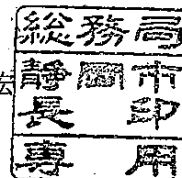 総務局
静岡市
長印
専用